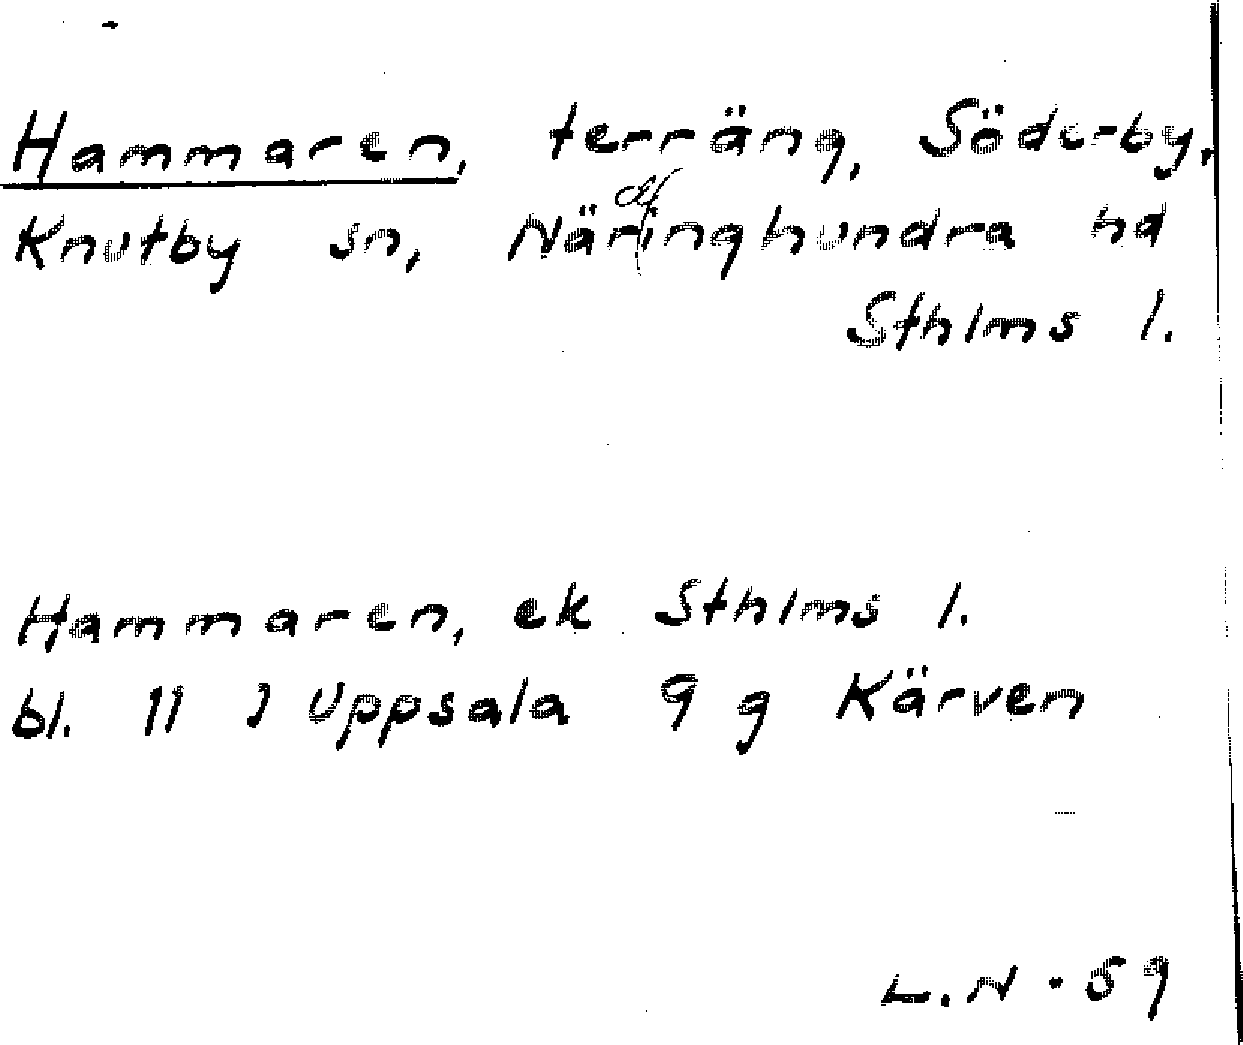 Hammaren, terräng, Söderby,
Knutby sn, Närdinghundra hd
Sthlms l.
Hammaren, ek Sthlms l.
bl. 11 J Uppsala 9 g Kärven
L.N. 59